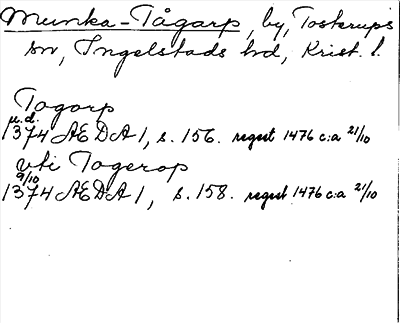 Munka-Tågarp, by, Tosterups
sn, Ingelstads hd, Krist. l.
Togorp
u.d.
1374 ÆDA 1, s. 156. regest 1476 c:a 21/10
vti Togerop
9/10
1374 ÆDA 1, s. 158. regest 1476 c:a 21/10